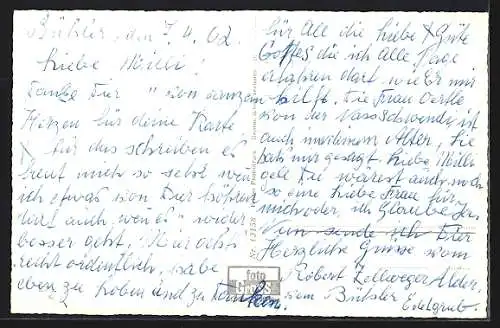 Bühler, den 7.4.62.
Liebe Milli!
Danke Dier " von ganzem
Herzen für deine Karte
für das schreiben es
freut mich so sehr wen
ich etwas von Dier hören
darf auch, wen es wieder
besser geht. Mier geht's
recht ordentlich, habe
eben zu loben und zu danken
für All die Liebe & Güte
Gottes die ich Alle Tage
erfahren darf wie er mir
hilft. Die Frau Oertle
von der Nassschwendi ist
auch in meinem Alter, Sie
hat mir gesagt Liebe Milli
du wärest auch noch
so eine liebe Frau für
mich oder, ich Glaube ja.
Nun sende ich Dier
Herzliche Grüsse vom
Robert Zellweger Alder.
vom Bühler
foto
GROSS